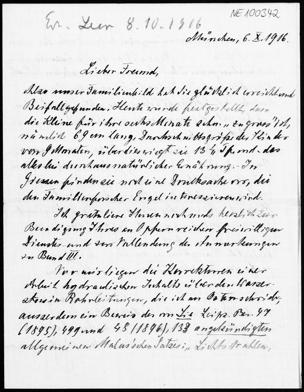 Er. Leer 8.10.1916
NE100342
München, 6.X.1916.
Lieber Freund,
Also unser Familienbild hat Sie glücklich erreicht und
Beifall gefunden. Heute wurde festgestellt, dass
die Kleine für ihre sechs Monate schon zu gross ist,
nämlich 69 cm lang, Durchschnittsgrösse des Kindes
von 9 Monaten, überdies wiegt sie 13½ Pfund. das
alles bei durchaus natürlicher Ernährung. In
Giessen finden Sie noch eine Drucksache vor, die
den Familienforscher Engel interessieren wird.
Ich gratuliere Ihnen noch herzlich zur
Beendigung Ihres an Opfern reichen freiwilligen
Dienstes und zur Vollendung der Anmerkungen
zu Band III.
Vor mir liegen die Korrekturen einer
Arbeit hydraulischen Inhalts über den Wasser-
stoss in Rohrleitungen, die ich an
ausserdem ein Beweis des von Lie Leipz. Ber. 47
(1895), 499 und 48 (1896), 133 angekündigten
allgemeinen Malus'schen Satzes: Lichtstrahlen,